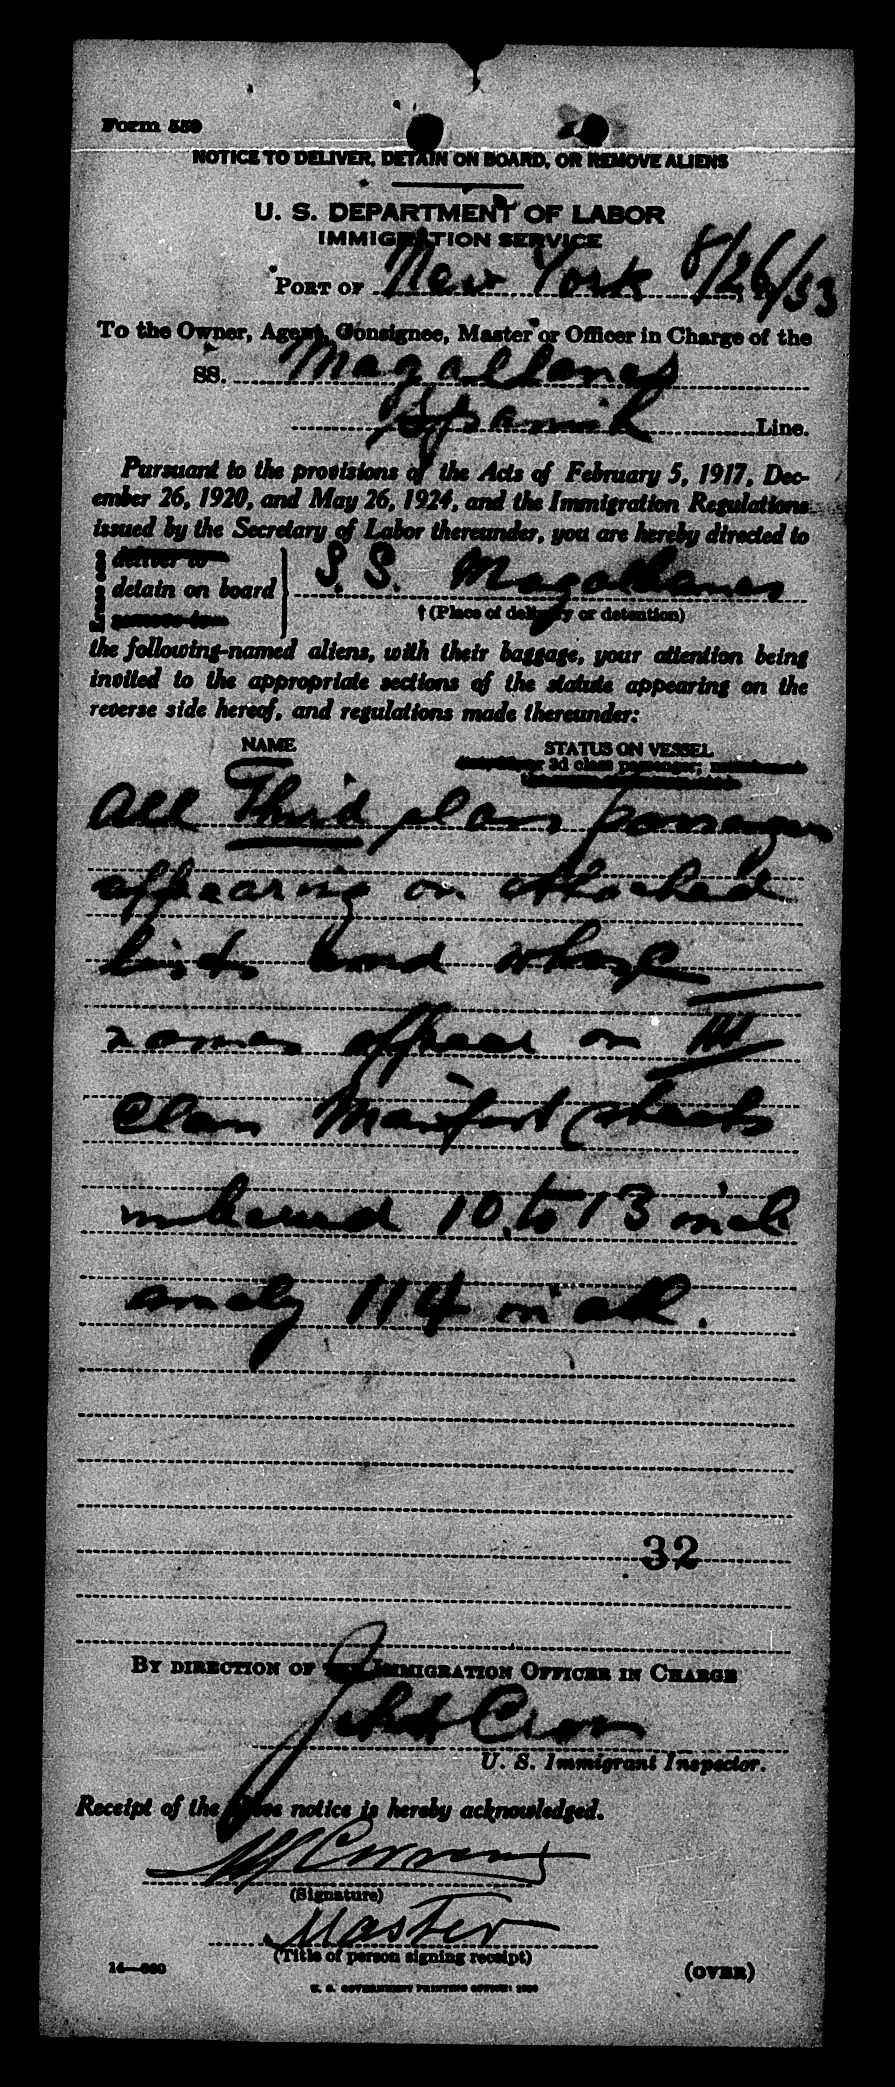 Form 559
NOTICE TO DELIVER, DETAIN ON BOARD, OR REMOVE ALIENS
U. S. DEPARTMENT OF LABOR
IMMIGRATION SERVICE
PORT OF New York 8/26/33
To the Owner, Agent, Consignee, Master or Officer in Charge of the
SS. Magallanes
Spanish Line.
Pursuant to the provisions of the Acts of February 5, 1917, Dec-
ember 26, 1920, and May 26, 1924, and the Immigration Regulations
issued by the Secretary of Labor thereunder, you are hereby directed to
deliver to
detain on board S.S. Magallanes
remove to
† (Place of delivery or detention)
the following-named aliens, with their baggage, your attention being
invited to the appropriate sections of the statute appearing on the
reverse side hereof, and regulations made thereunder:
NAME STATUS ON VESSEL
3d class passenger;
All Third class passengers
appearing on attached
lists and whose
names appear on III
class Manifest sheets
numbered 10 to 13 incl
114 in all.
32
BY DIRECTION OF THE IMMIGRATION OFFICER IN CHARGE
U. S. Immigrant Inspector.
Receipt of the above notice is hereby acknowledged.
(Signature)
Master
(Title of person signing receipt)
14—660 (OVER)
U. S. GOVERNMENT PRINTING OFFICE: